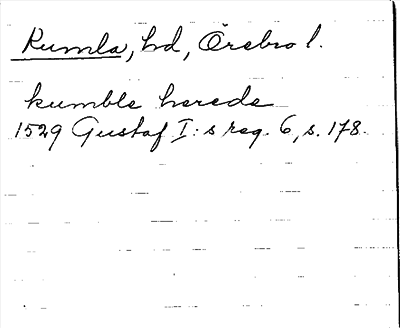 Kumla, hd, Örebro l.
kumble herede
1529 Gustaf I:s reg. 6, s. 178.